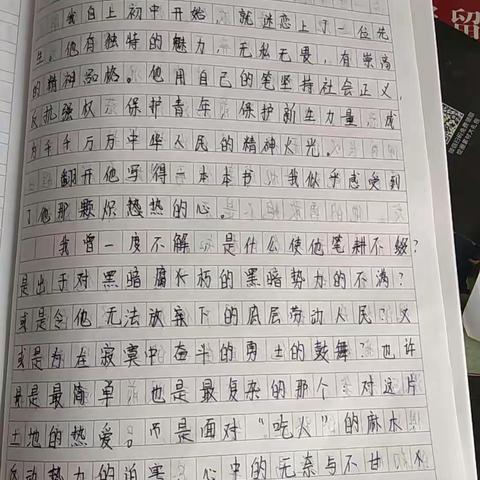 我自上初中开始,就迷恋上了一位先
生。他有独特的魅力,无私无畏,有崇高
的精神品格。他用自己的笔坚持社会正义,
反抗强权,保护青年,保护新生力量,成
为千千万万中华人民的精神火光。
翻开他写得一本本书,我似乎感受到
了他那颗炽热热的心。
我曾一度不解,是什么使他笔耕不缀?
是出于对黑暗腐朽的黑暗势力的不满?
或是令他无法放弃下的底层劳动人民?又
或是为在寂寞中奋斗的勇士的鼓舞?也许
是最简单,也是最复杂的那个,对这片
土地的热爱。而是面对“吃人”的麻木,
动势力的迫害,心中的无奈与不甘
留